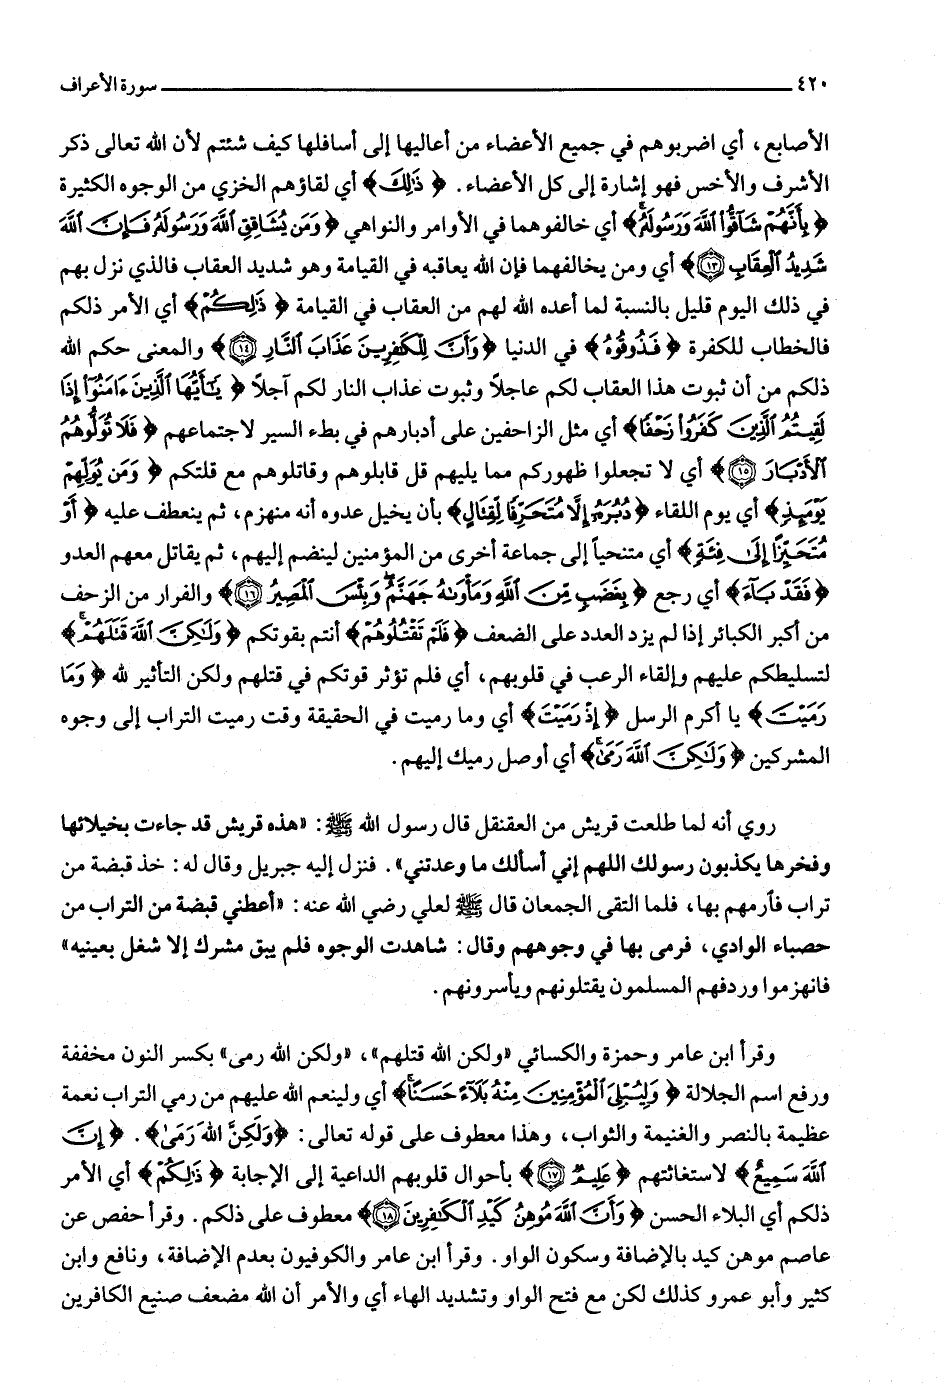 ٤٢٠ سورة الأعراف
الأصابع، أي اضربوهم في جميع الأعضاء من أعاليها إلى أسافلها كيف شئتم لأن الله تعالى ذكر
الأشرف والأخس فهو إشارة إلى كل الأعضاء. ﴿ ذَٰلِكَ﴾ أي لقاؤهم الخزي من الوجوه الكثيرة
﴿ بِأَنَّهُمْ شَآقُّوا۟ ٱللَّهَ وَرَسُولَهُۥ﴾ أي خالفوهما في الأوامر والنواهي ﴿ وَمَن يُشَاقِقِ ٱللَّهَ وَرَسُولَهُۥ فَإِنَّ ٱللَّهَ
شَدِيدُ ٱلْعِقَابِ ١٣﴾ أي ومن يخالفهما فإن الله يعاقبه في القيامة وهو شديد العقاب فالذي نزل بهم
في ذلك اليوم قليل بالنسبة لما أعده الله لهم من العقاب في القيامة ﴿ ذَٰلِكُمْ﴾ أي الأمر ذلكم
فالخطاب للكفرة ﴿ فَذُوقُوهُ﴾ في الدنيا ﴿وَأَنَّ لِلْكَٰفِرِينَ عَذَابَ ٱلنَّارِ ١٤﴾ والمعنى حكم الله
ذلكم من أن ثبوت هذا العقاب لكم عاجلاً وثبوت عذاب النار لكم آجلاً ﴿ يَٰٓأَيُّهَا ٱلَّذِينَ ءَامَنُوٓا۟ إِذَا
لَقِيتُمُ ٱلَّذِينَ كَفَرُوا۟ زَحْفًا﴾ أي مثل الزاحفين على أدبارهم في بطء السير لاجتماعهم ﴿ فَلَا تُوَلُّوهُمُ
ٱلْأَدْبَارَ ١٥﴾ أي لا تجعلوا ظهوركم مما يليهم قل قابلوهم وقاتلوهم مع قلتكم ﴿ وَمَن يُوَلِّهِمْ
يَوْمَئِذٍ﴾ أي يوم اللقاء ﴿دُبُرَهُۥٓ إِلَّا مُتَحَرِّفًا لِّقِتَالٍ﴾ بأن يخيل عدوه أنه منهزم، ثم ينعطف عليه ﴿ أَوْ
مُتَحَيِّزًا إِلَىٰ فِئَةٍ﴾ أي متنحياً إلى جماعة أخرى من المؤمنين لينضم إليهم، ثم يقاتل معهم العدو
﴿ فَقَدْ بَآءَ﴾ أي رجع ﴿ بِغَضَبٍ مِّنَ ٱللَّهِ وَمَأْوَىٰهُ جَهَنَّمُ وَبِئْسَ ٱلْمَصِيرُ ١٦﴾ والفرار من الزحف
من أكبر الكبائر إذا لم يزد العدد على الضعف ﴿ فَلَمْ تَقْتُلُوهُمْ﴾ أنتم بقوتكم ﴿ وَلَٰكِنَّ ٱللَّهَ قَتَلَهُمْ﴾
لتسليطكم عليهم وإلقاء الرعب في قلوبهم، أي فلم تؤثر قوتكم في قتلهم ولكن التأثير لله ﴿ وَمَا
رَمَيْتَ﴾ يا أكرم الرسل ﴿ إِذْ رَمَيْتَ﴾ أي وما رميت في الحقيقة وقت رميت التراب إلى وجوه
المشركين ﴿ وَلَٰكِنَّ ٱللَّهَ رَمَىٰ﴾ أي أوصل رميك إليهم.
روي أنه لما طلعت قريش من العقنقل قال رسول الله ﷺ: «هذه قريش قد جاءت بخيلائها
وفخرها يكذبون رسولك اللهم إني أسألك ما وعدتني». فنزل إليه جبريل وقال له: خذ قبضة من
تراب فارمهم بها، فلما التقى الجمعان قال ﷺ لعلي رضي الله عنه: «أعطني قبضة من التراب من
حصباء الوادي، فرمى بها في وجوههم وقال: شاهدت الوجوه فلم يبق مشرك إلا شغل بعينيه»
فانهزموا وردفهم المسلمون يقتلونهم ويأسرونهم.
وقرأ ابن عامر وحمزة والكسائي «ولكن الله قتلهم»، «ولكن الله رمى» بكسر النون مخففة
ورفع اسم الجلالة ﴿ وَلِيُبْلِىَ ٱلْمُؤْمِنِينَ مِنْهُ بَلَآءً حَسَنًا﴾ أي ولينعم الله عليهم من رمي التراب نعمة
عظيمة بالنصر والغنيمة والثواب، وهذا معطوف على قوله تعالى: ﴿وَلَكِنَّ اللهَ رَمَىٰ﴾. ﴿ إِنَّ
ٱللَّهَ سَمِيعٌ﴾ لاستغاثتهم ﴿ عَلِيمٌ ١٧﴾ بأحوال قلوبهم الداعية إلى الإجابة ﴿ ذَٰلِكُمْ﴾ أي الأمر
ذلكم أي البلاء الحسن ﴿ وَأَنَّ ٱللَّهَ مُوهِنُ كَيْدِ ٱلْكَٰفِرِينَ ١٨﴾ معطوف على ذلكم. وقرأ حفص عن
عاصم موهن كيد بالإضافة وسكون الواو. وقرأ ابن عامر والكوفيون بعدم الإضافة، ونافع وابن
كثير وأبو عمرو كذلك لكن مع فتح الواو وتشديد الهاء أي والأمر أن الله مضعف صنيع الكافرين